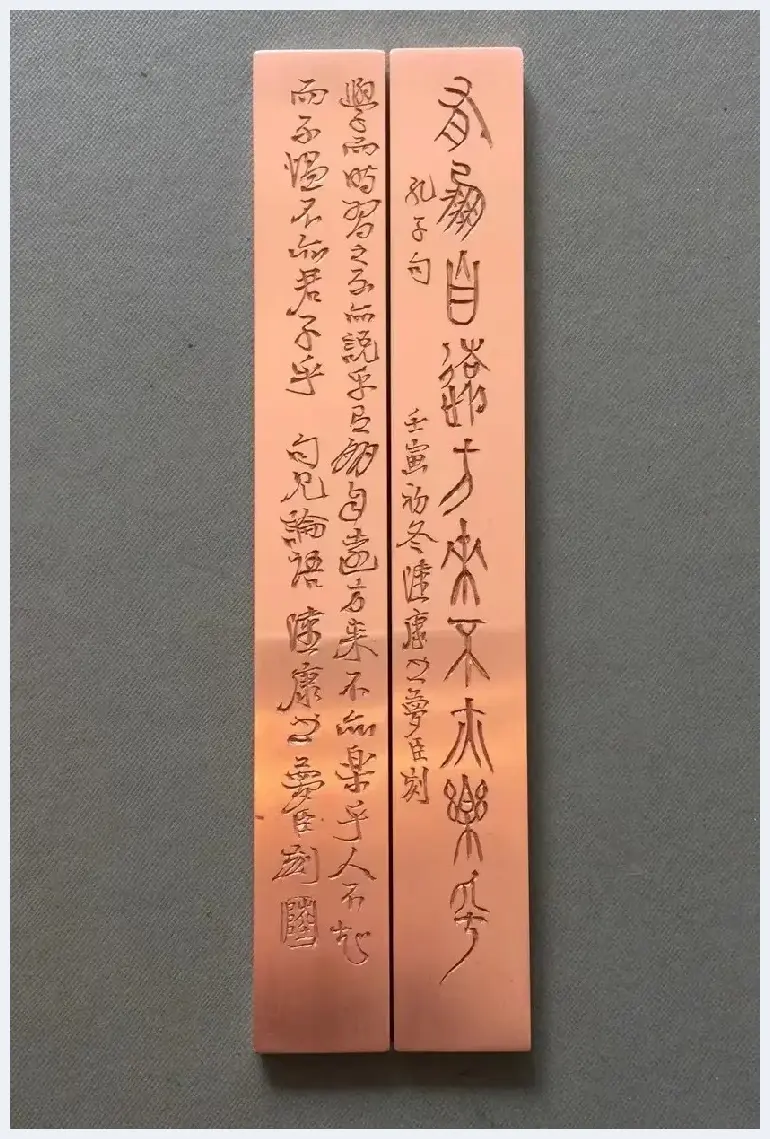 有朋自遠方來不亦樂乎
孔子句 壬寅初冬陸康书夢臣刻
學而時習之不亦説乎有朋自遠方来不亦楽乎人不知
而不愠不亦君子乎 句見論語 陸康书夢臣刻 陸